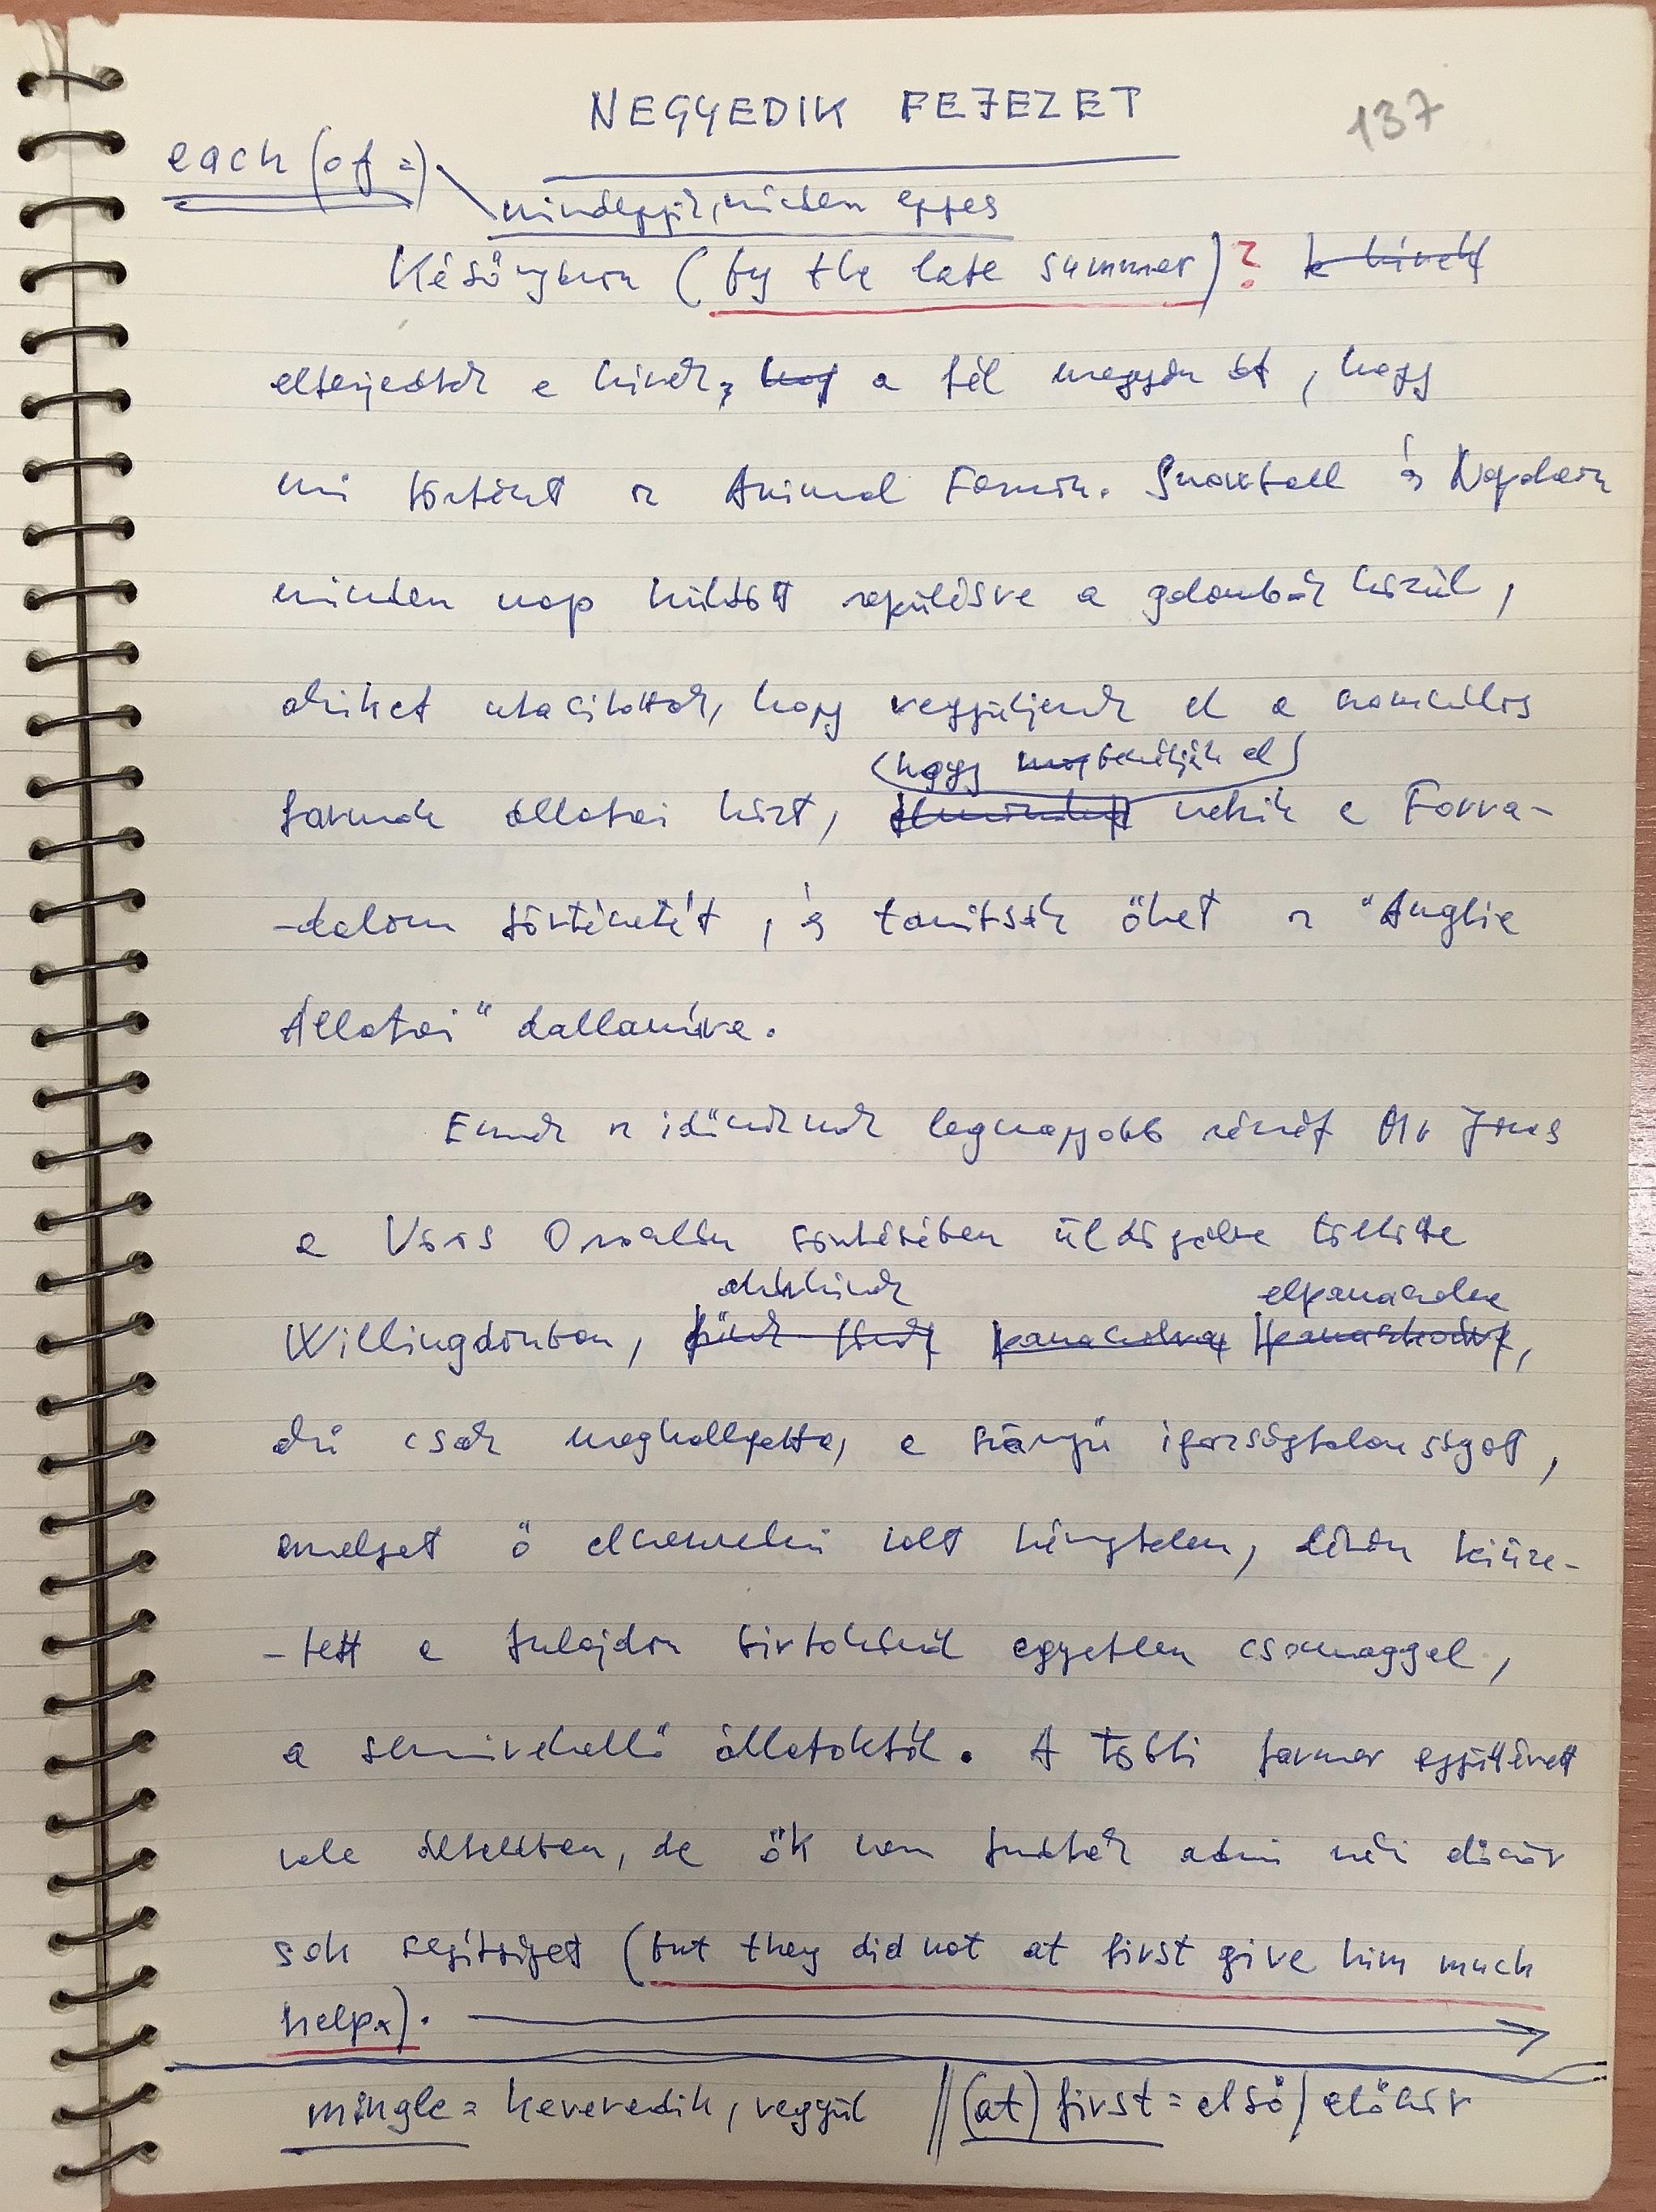 NEGYEDIK FEJEZET
137
each (of =)
mindegyik, minden egyes
Későnyáron (by the late summer)? a hírek
elterjedtek a hírek, hogy a fél megyén át, hogy
mi történt az Animal Farmon. Snowball és Napoleon
minden nap küldött repülésre a galambok közül,
akiket utasítottak, hogy vegyüljenek el a szomszédos
(hogy meséljék el)
farmok állatai közt, nekik a Forra-
-dalom történetét, és tanítsák őket az "Anglia
Állatai" dallamára.
Ennek az időnek legnagyobb részét Mr Jones
a Vörös Oroszlán söntésében üldögélve töltötte
akárkinek elpanaszolva
Willingdonban, panaszolva panaszkodott,
aki csak meghallgatta, a szörnyű igazságtalanságot,
amelyet ő elszenvedni volt kénytelen, lévén kiüze-
-tett a tulajdon birtokából egyetlen csomaggal,
a semmirekellő állatoktól. A többi farmer együttérzett
vele általában, de ők nem tudtak adni neki először
sok segítséget (but they did not at first give him much
help.).
mingle = keveredik, vegyül // (at) first = első / először